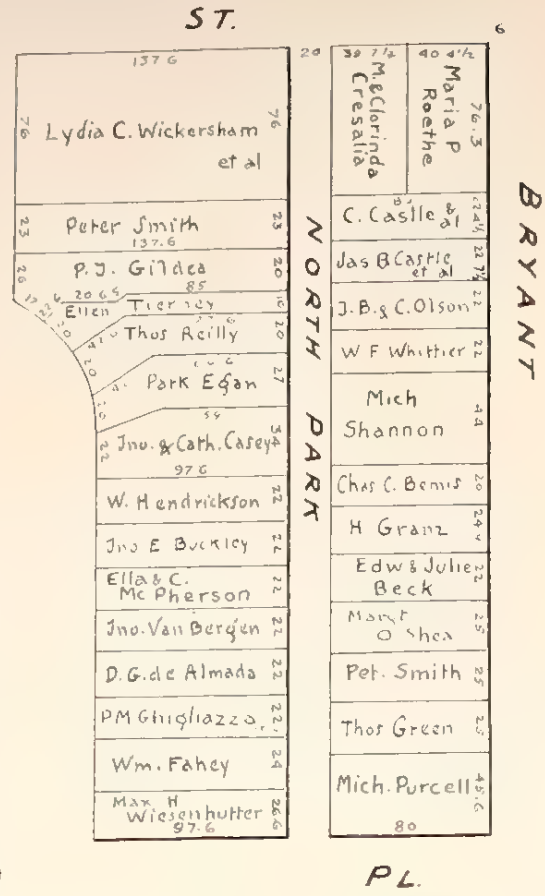 ST.
6
137 6
76
Lydia C. Wickersham
et al
76
23
Peter Smith
137.6
23
26
P. J. Gildea
85
20
17
20 65
Ellen Tierney
20
Thos Reilly
20
20
Park Egan
27
Jno. & Cath. Casey
97 6
22
34
W. Hendrickson
22
Jno E Buckley
22
Ella & C.
Mc Pherson
22
Jno. Van Bergen
22
D. G. de Almada
22
P M Ghigliazza
22
Wm. Fahey
24
Max H
Wiesenhutter
97.6
26 6
20
NORTH PARK
M. & Clorinda
Cresalia
40 4 1/2
Maria P
Roethe
76.3
C. Castle &
al
Jas B Castle
et al
J. B. & C. Olson
22
W F Whittier
22
Mich
Shannon
44
Chas C. Bemis
20
H Granz
Edw & Julie
Beck
22
Margt
O Shea
25
Pet. Smith
25
Thos Green
25
Mich. Purcell
45.6
80
BRYANT
PL.